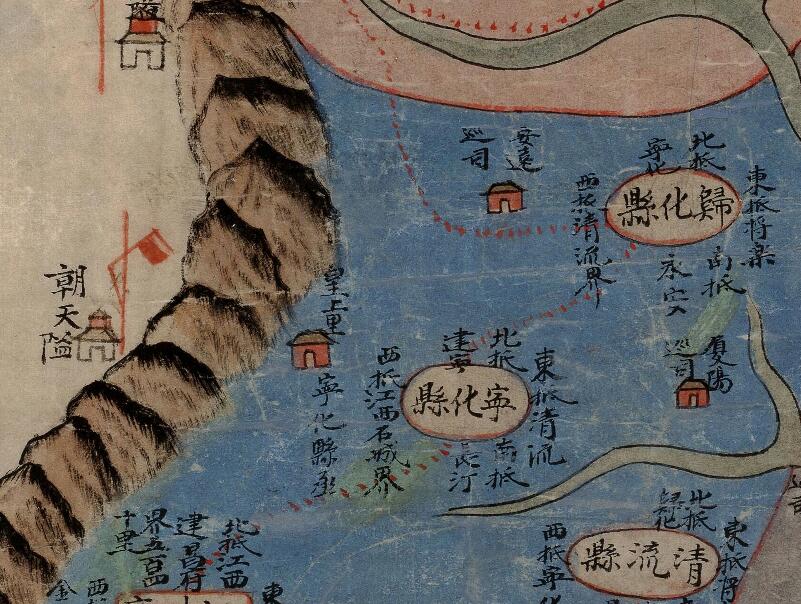 朝天隘
安遠
巡司
歸化縣
北抵
寧化
東抵將樂
南抵
永安
西抵清流界
夏陽
巡司
皇上里
寧化縣丞
寧化縣
北抵
建寧
東抵清流
南抵
長汀
西抵江西石城界
清流縣
北抵
歸化
東抵將
西抵寧化
北抵江西
建昌府
界五百四
十里
東
西